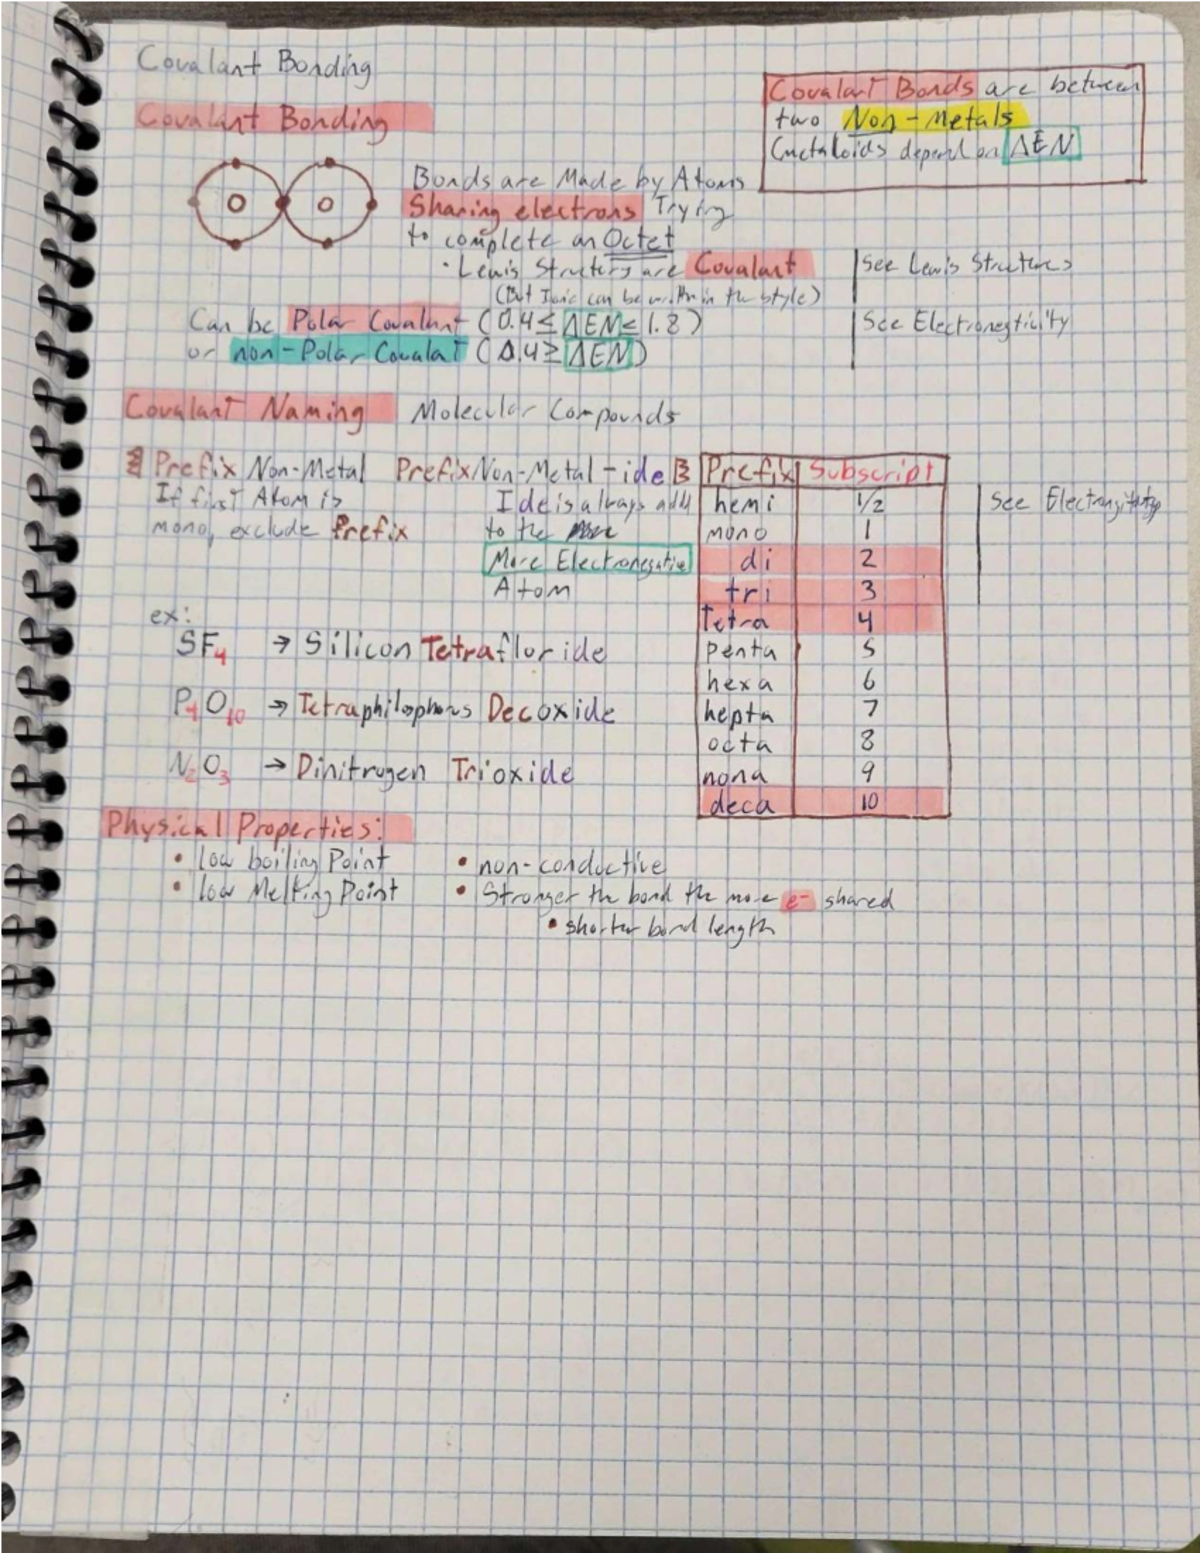 Covalant Bonding
Covalant Bonds are between
two Non-Metals
(metaloids depend on ΔEN
Covalant Bonding
Bonds are Made by Atoms
Sharing electrons Trying
to complete an Octet
· Lewis Structers are Covalant
(But Ionic can be writtn in the style)
See Lewis Structures
Can be Polar Covalant (0.4 ≤ ΔEN ≤ 1.8)
See Electronegticity
or non-Polar Covalat (0.4 ≥ ΔEN)
Covalant Naming Molecular Compounds
Prefix Non-Metal Prefix Non-Metal -ide
If first Atom is
mono, exclude Prefix
Ide is always add
to the
More Electronegative
Atom
Prefix Subscript
hemi 1/2
mono 1
di 2
tri 3
Tetra 4
penta 5
hexa 6
hepta 7
octa 8
nona 9
deca 10
See
ex:
SF4 → Silicon Tetrafluoride
P4O10 → Tetraphilosphorus Decoxide
N2O3 → Dinitrogen Trioxide
Physical Properties:
• low boiling Point
• low Melting Point
• non-conductive
• Stronger the bond the more e- shared
• shorter bond length